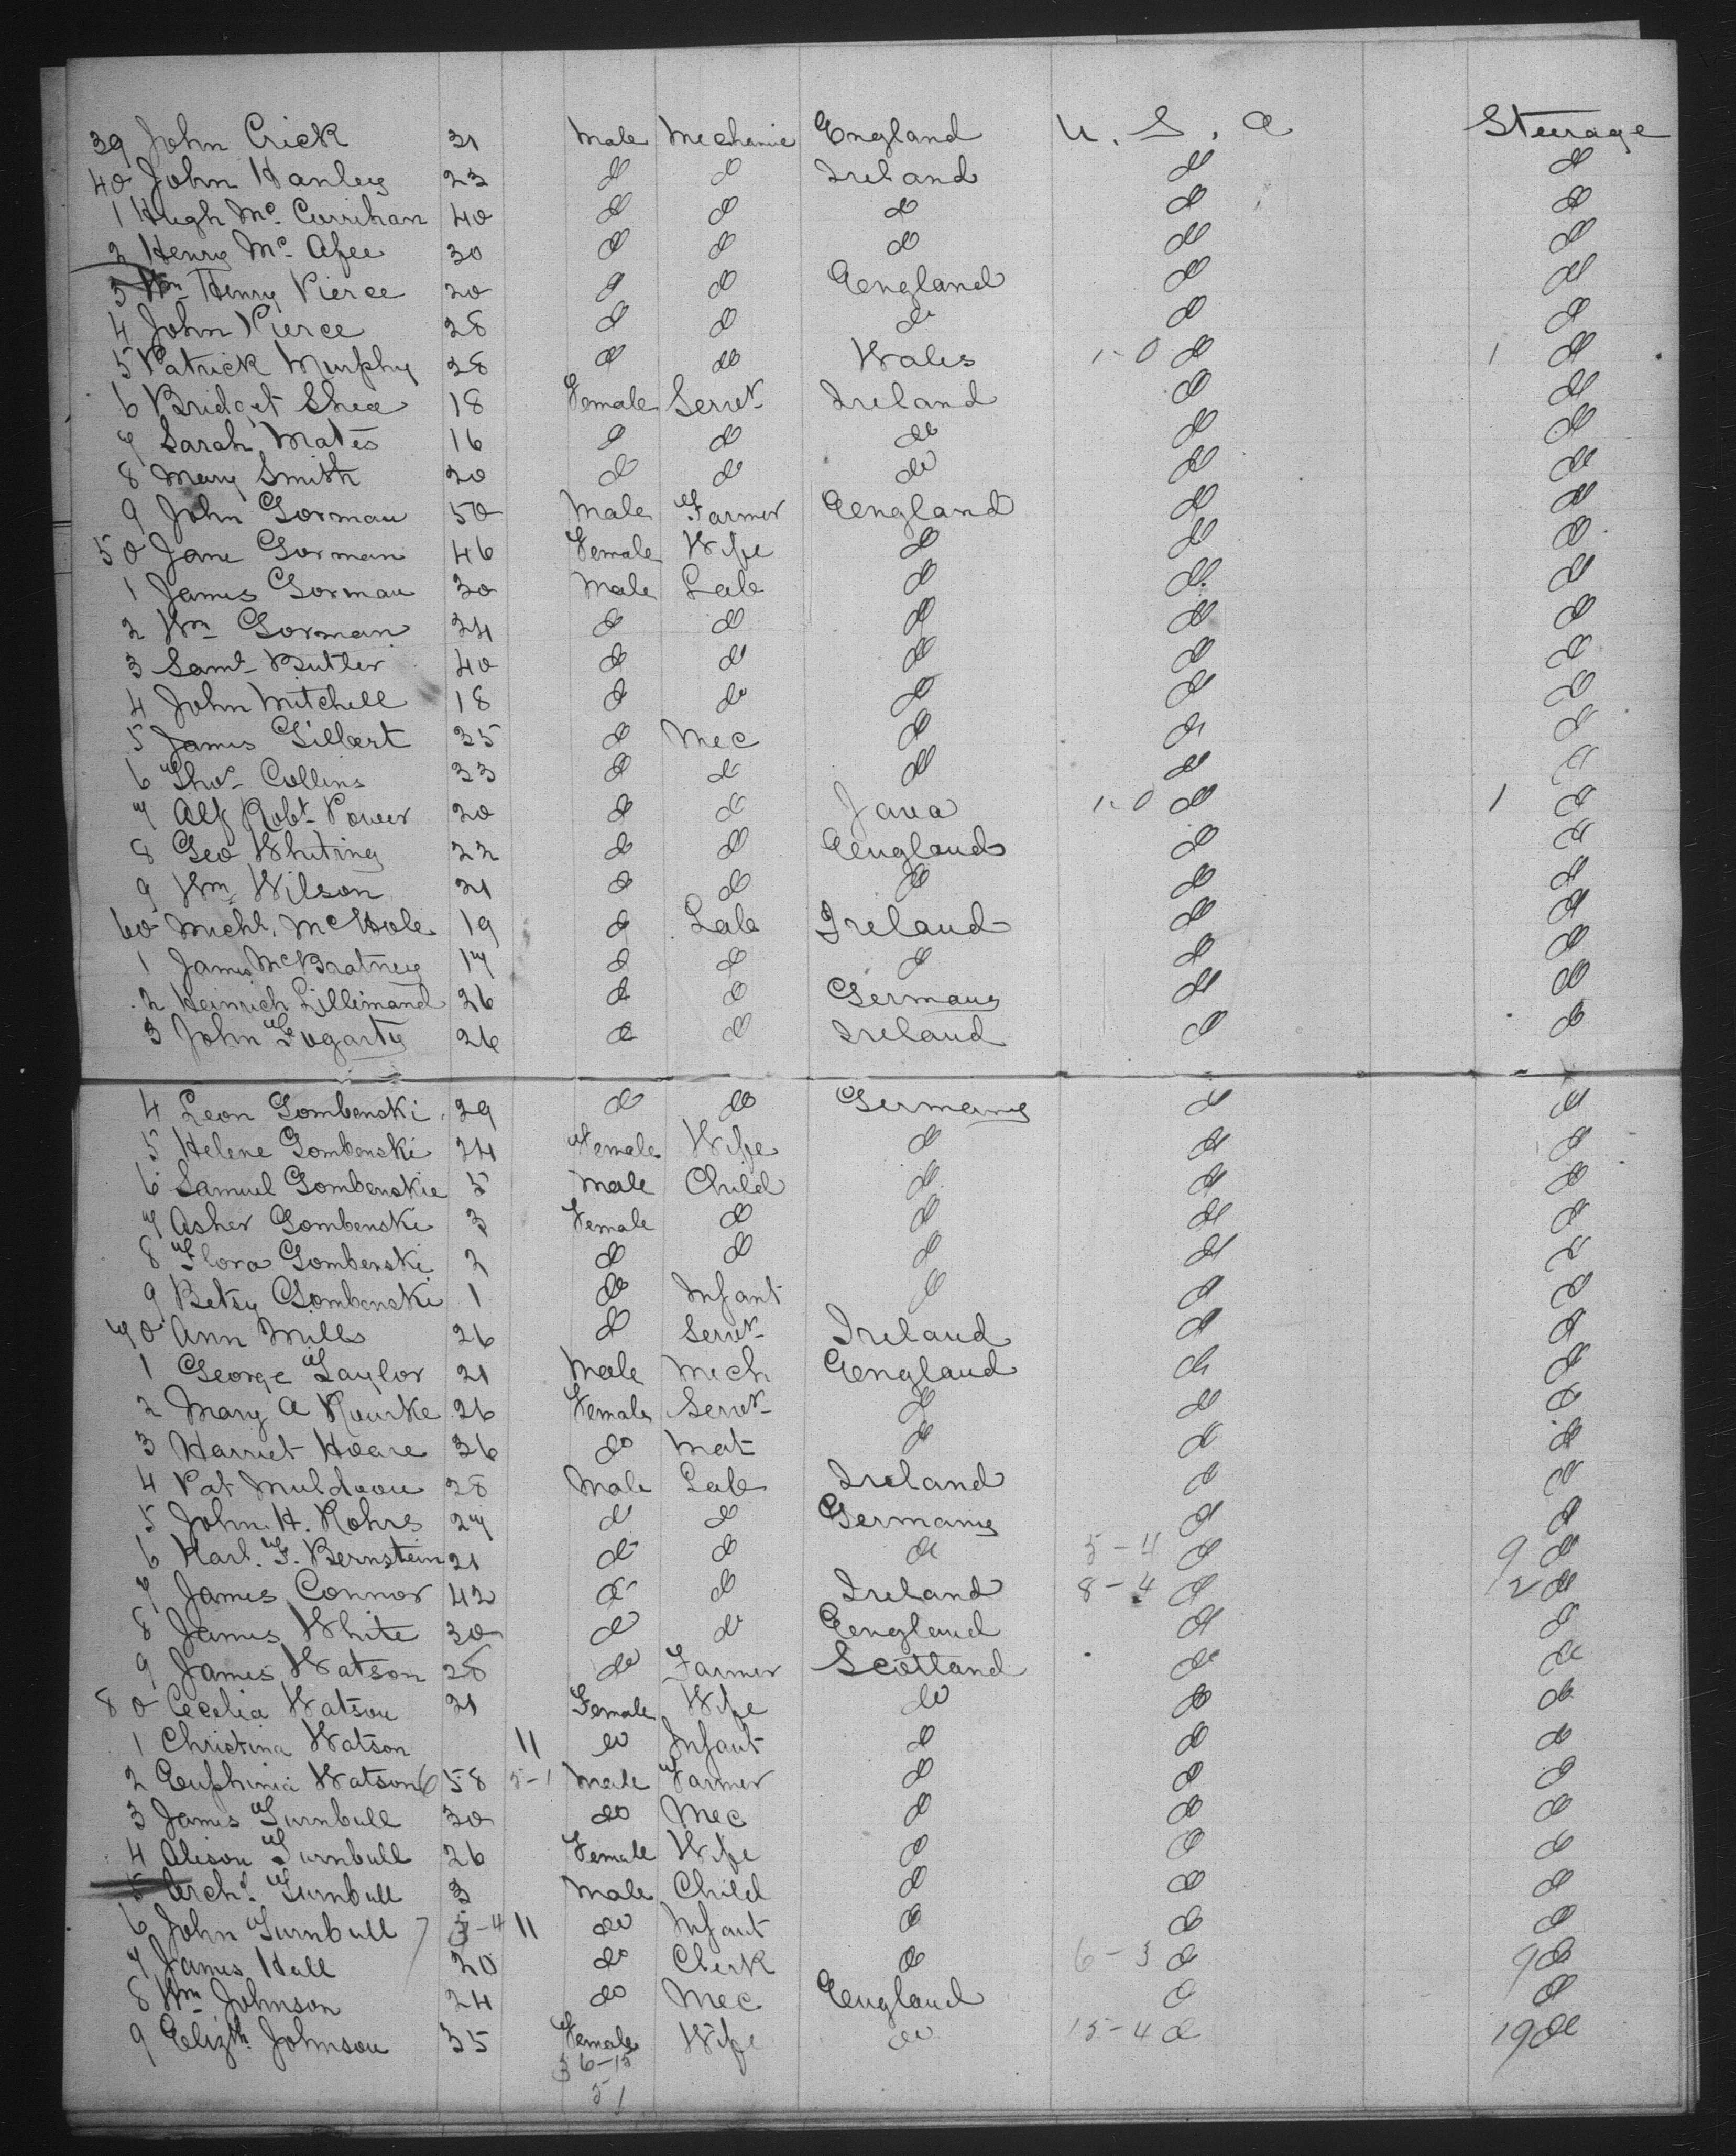 39 John Crick 31 Male Mechanic England U. S. A Steerage
40 John Hanley 23 do do Ireland do do
1 Hugh Mc. Currihan 40 do do do do do
2 Henry Mc. Afee 30 do do do do do
3 Wm Henry Pierce 20 do do England do do
4 John Pierce 28 do do do do do
5 Patrick Murphy 28 do do Wales 1-0 do 1 do
6 Bridget Shea 18 Female Servt Ireland do do
7 Sarah Mates 16 do do do do do
8 Mary Smith 20 do do do do do
9 John Gorman 50 Male Farmer England do do
50 Jane Gorman 46 Female Wife do do do
1 James Gorman 30 Male Lab do do do
2 Wm Gorman 24 do do do do do
3 Saml Butler 40 do do do do do
4 John Mitchell 18 do do do do do
5 James Gilbert 35 do Mec do do do
6 Thos Collins 33 do do do do do
7 Alf Robt Power 20 do do Java 1-0 do 1 do
8 Geo Whiting 22 do do England do do
9 Wm Wilson 21 do do do do do
60 Michl. McHole 19 do Lab Ireland do do
1 James McBratney 17 do do do do do
2 Heinrich Lillimand 26 do do Germany do do
3 John Fogarty 26 do do Ireland do do
4 Leon Gombenski 29 do do Germany do do
5 Helene Gombenski 24 Female Wife do do do
6 Samuel Gombenskie 5 Male Child do do do
7 Asher Gombenski 3 Female do do do do
8 Flora Gombenski 2 do do do do do
9 Betsy Gombenski 1 do Infant do do do
70 Ann Mills 26 do Servt Ireland do do
1 George Taylor 21 Male Mech England do do
2 Mary A Rourke 26 Female Servt do do do
3 Harriet Hoare 36 do Mat do do do
4 Pat Muldoon 28 Male Lab Ireland do do
5 John. H. Rohrs 27 do do Germany do do
6 Karl. F. Bernstein 21 do do do 5-4 do 9 do
7 James Connor 42 do do Ireland 8-4 do 12 do
8 James White 30 do do England do do
9 James Watson 28 do Farmer Scotland do do
80 Cecelia Watson 21 Female Wife do do do
1 Christina Watson 11 do Infant do do do
2 Euphimia Watson 6 58 5-1 Male Farmer do do do
3 James Turnbull 30 do Mec do do do
4 Alison Turnbull 26 Female Wife do do do
5 Archd. Turnbull 3 Male Child do do do
6 John Turnbull 7 3-4 11 do Infant do do do
7 James Hall 20 do Clerk do 6-3 do 9 do
8 Wm Johnson 24 do Mec England do do
9 Elizth Johnson 35 Female Wife do 15-4 do 19 do
36-15
51